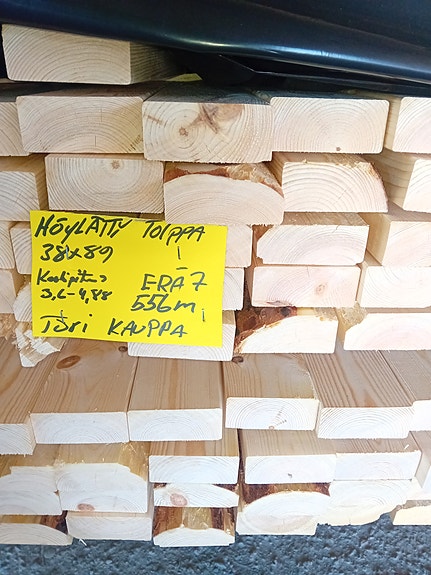 HÖYLÄTTY TOLPPA
38x89
Keskipituus
3,6-4,88
ERÄ 7
556m
Tori KAUPPA